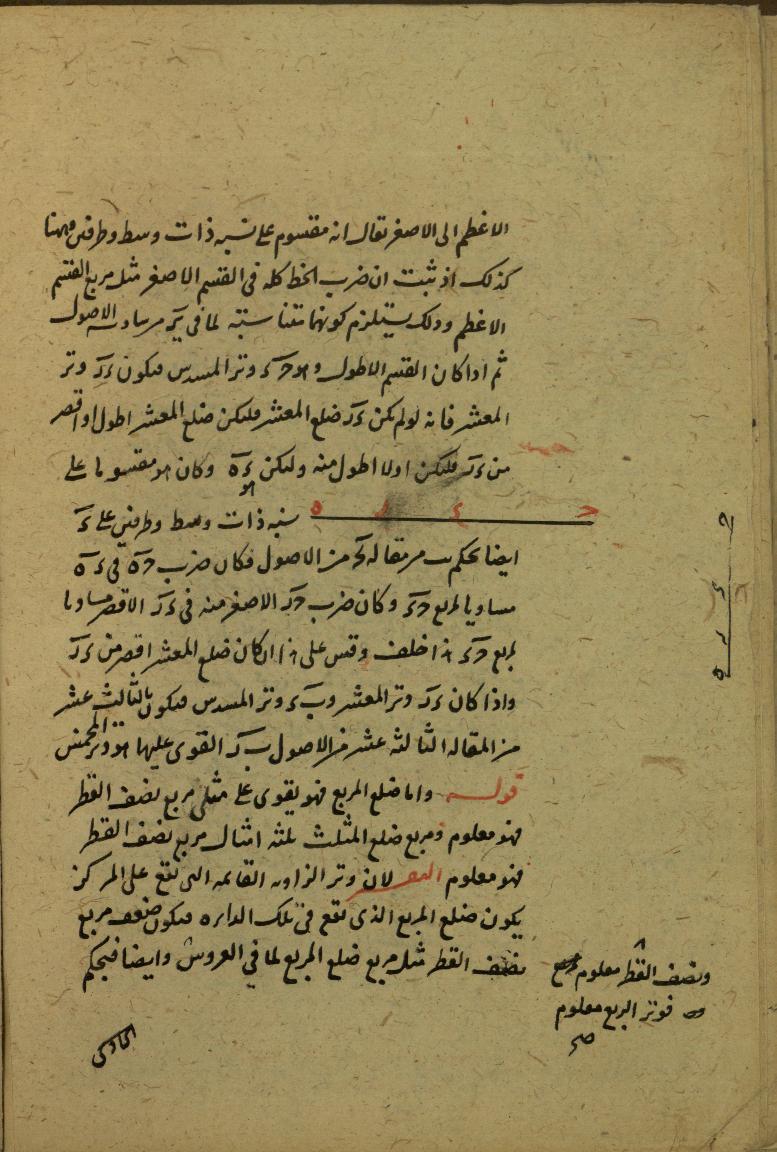 الاعظم الى الاصغر يقال انه مقسوم على نسبه ذات وسط وطرفين وههنا
كذلك اذ ثبت ان ضرب الخط كله فى القسم الاصغر مثل مربع القسم
الاعظم وذلك يستلزم كونها متناسبة لما فى من سادسه الاصول
ثم اذا كان القسم الاطول وهو حء وتر المسدس فيكون ءر وتر
المعشر فانه لو لم يكن ءر ضلع المعشر فليكن ضلع المعشر اطول او اقصر
من ءر فليكن اولا اطول منه وليكن ءه وكان مقسوما على
نسبه ذات وسط وطرفين على ء
ه ر ء ح
ايضا بحكم من مقاله من الاصول فكان ضرب حه فى ءه
مساويا لمربع حء وكان ضرب حر الاصغر منه فى ءر الاقصر مساويا
لمربع حء هذا خلف وقس على هذا ان كان ضلع المعشر اقصر من ءر
واذا كان ءر وتر المعشر وبء وتر المسدس فيكون بالثالث عشر
من المقاله الثالثه عشر من الاصول بر القوى عليها هو وتر المخمس
قوله واما ضلع المربع فهو يقوى على مثلى مربع نصف القطر
فهو معلوم ومربع ضلع المثلث ثلثه امثال مربع نصف القطر
فهو معلوم لان وتر الزاويه القائمه التى تقع على المركز
يكون ضلع المربع الذى تقع فى تلك الدايره فيكون ضعف مربع
نصف القطر مثل مربع ضلع المربع لما فى العروس وايضا فبحكم
ونصف القطر معلوم
فوتر الربع معلوم
صح
الحادى
ح
ء
ر
ه